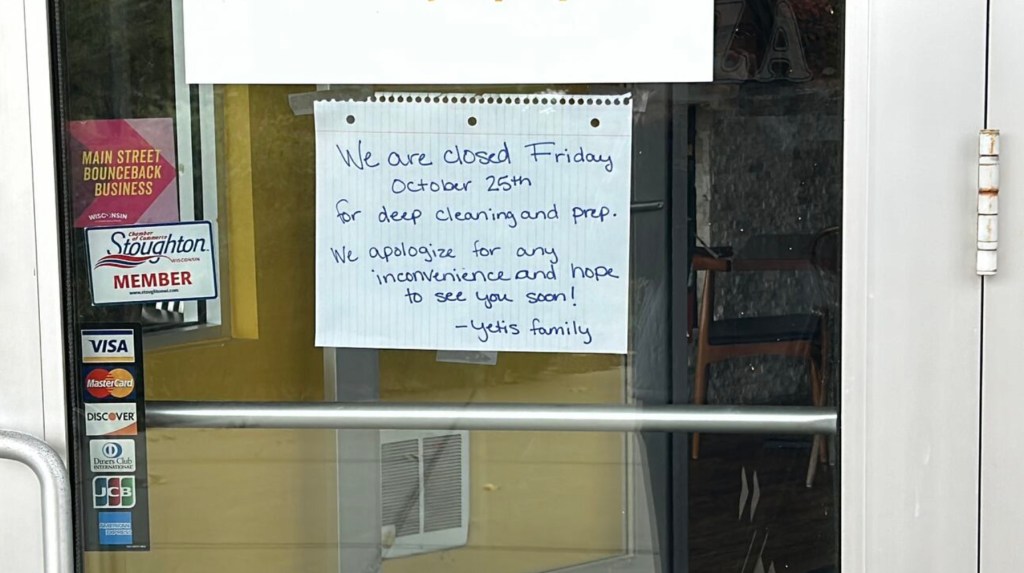 ZA
MAIN STREET
BOUNCEBACK
BUSINESS
WISCONSIN
Chamber
of Commerce
Stoughton
WISCONSIN
MEMBER
www.stoughtonwi.com
We are closed Friday
October 25th
for deep cleaning and prep.
We apologize for any
inconvenience and hope
to see you soon!
- Yetis family
VISA
MasterCard
DISCOVER
Diners Club
INTERNATIONAL
JCB
AMERICAN
EXPRESS